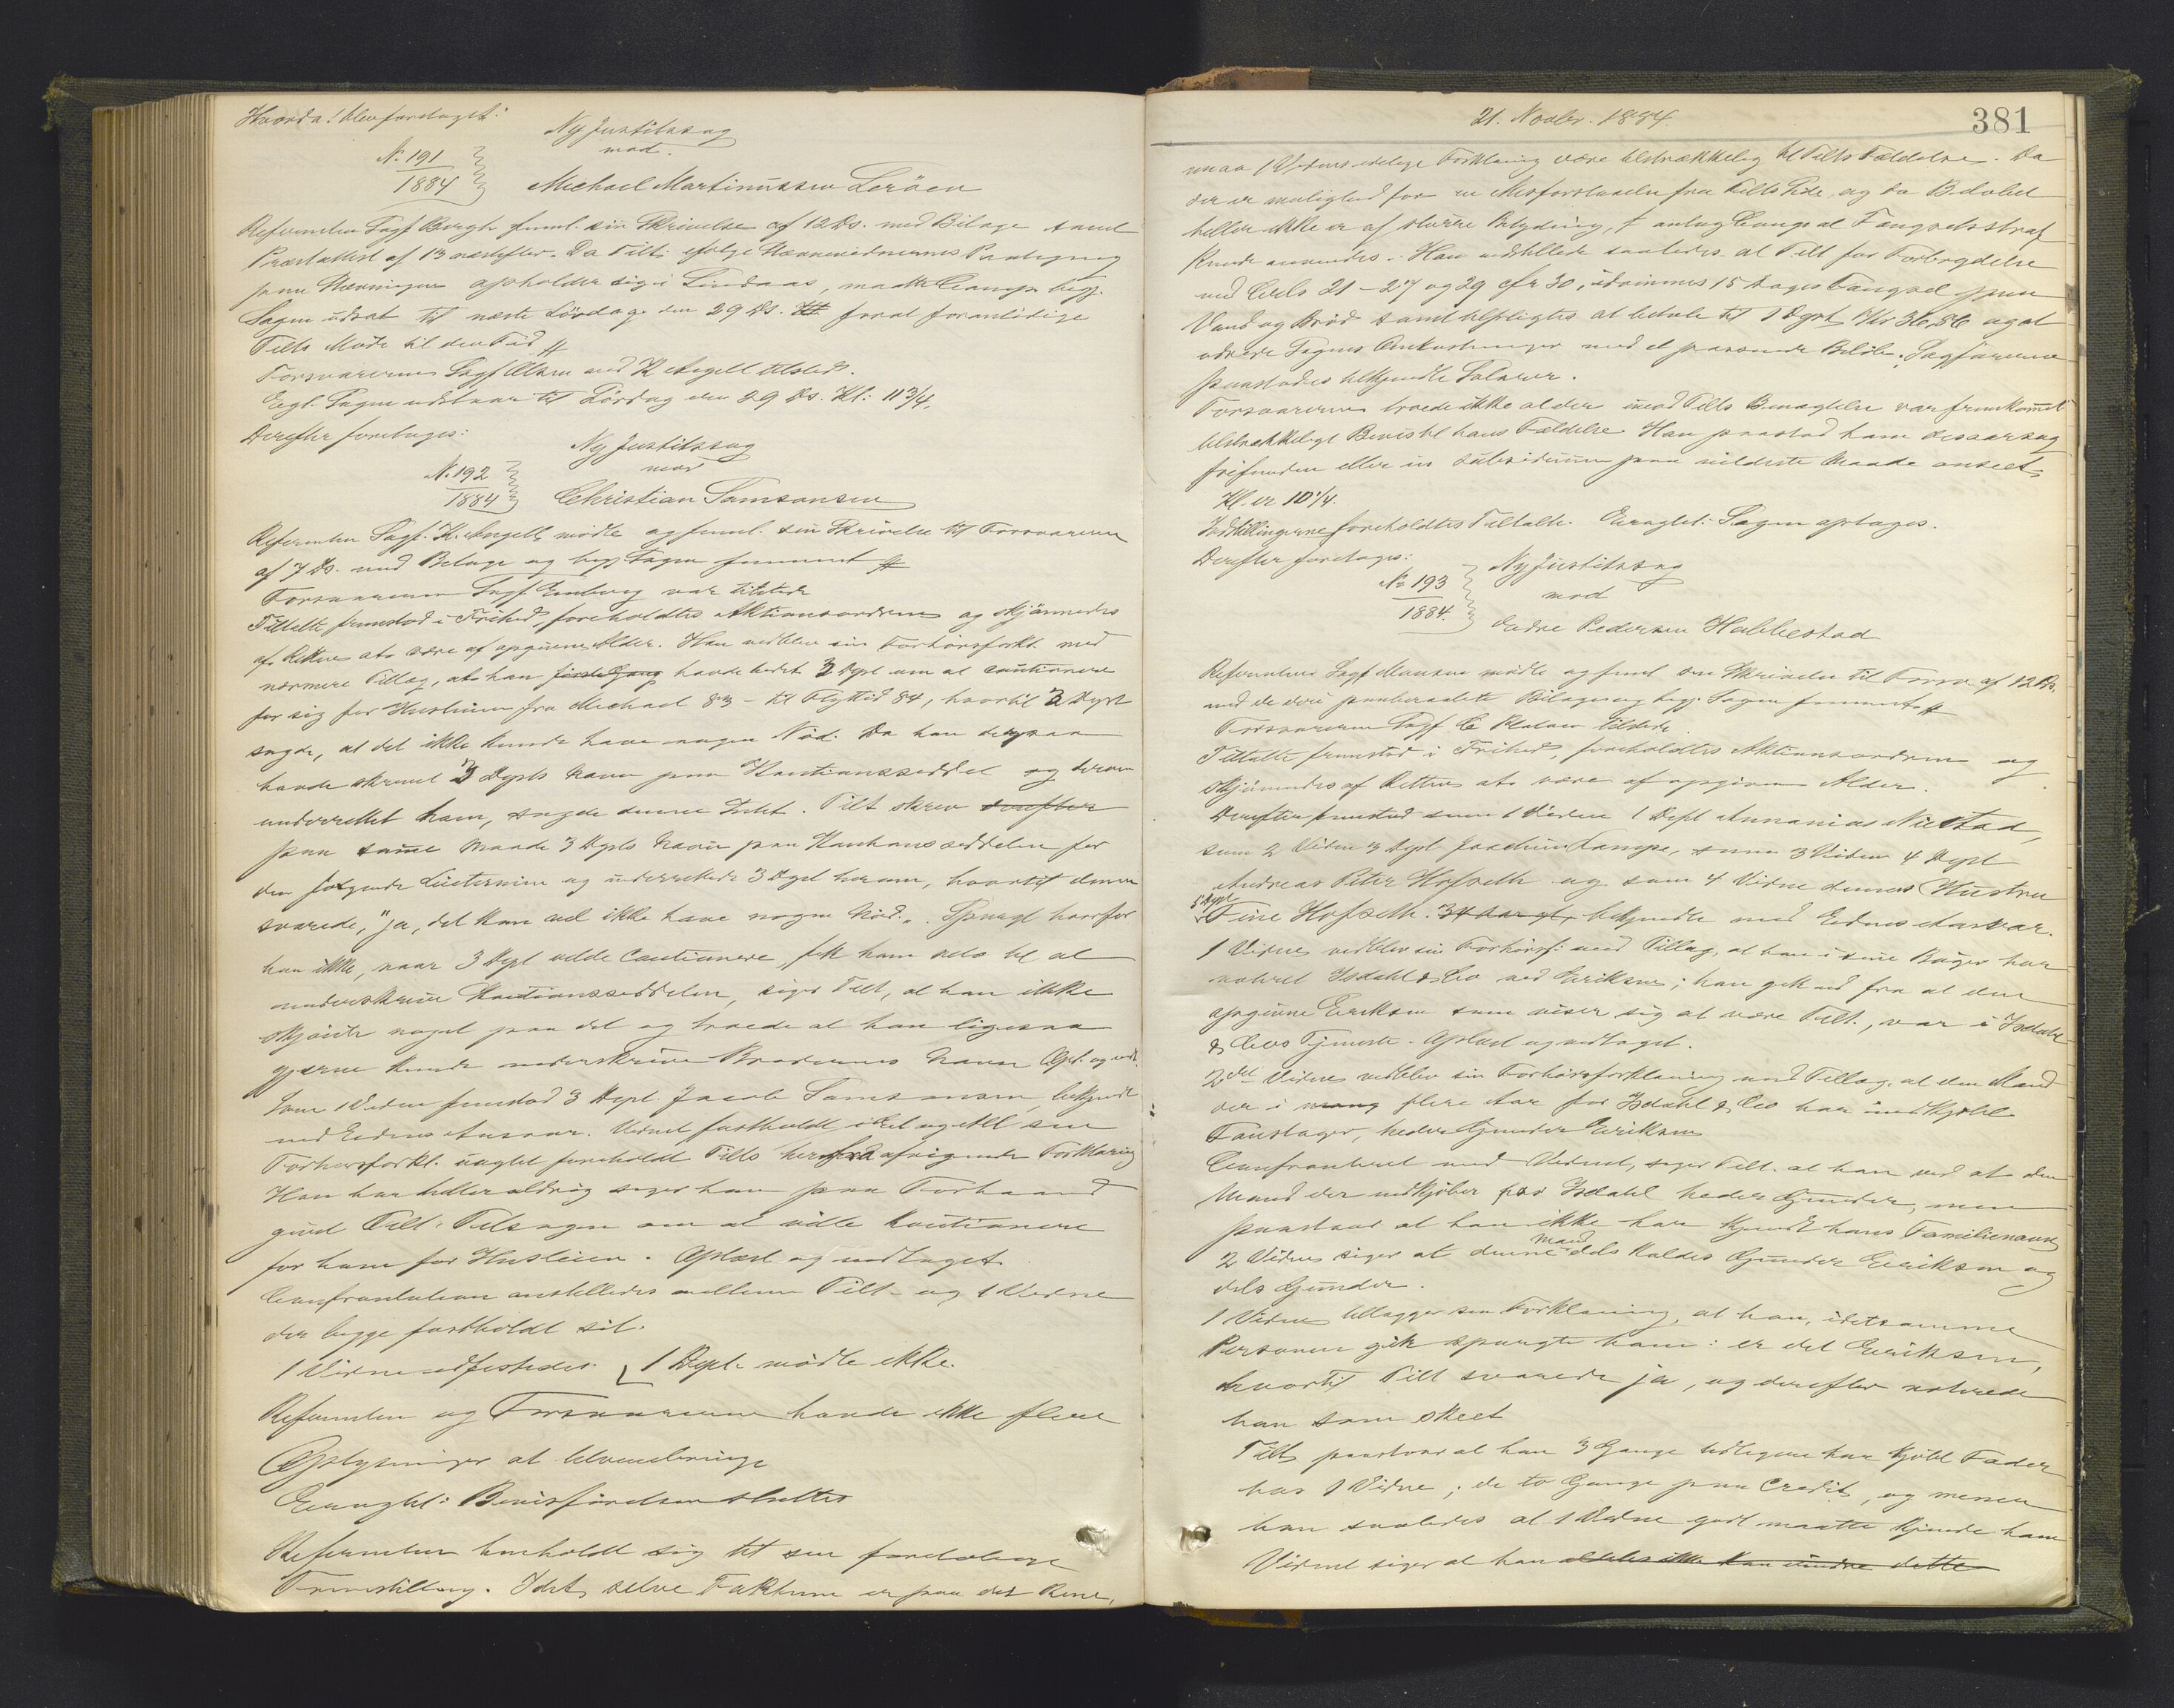 Hvorda! blev foretaget:
Ny Justitssag
mod
No 191
1884
Michael Martinussen Leröen
Referenten Sagf Bergh freml. sin Skrivelse af 12 Ds. med Bilage samt
Præstattest af 13 næstefter. Da Tilt. ifölge Stævnevidnernes Paategning
paa Stævningen opholder sig i Lindaas, maatte Comp. begj.
Sagen udsat til næste Lördag den 29 Ds. for at foranledige
Tilts Möde til den Tid #
Forsvareren Sagf Olsen ved K Angell tilsted.
Eegl. Sagen udstaar til Lördag den 29 Ds. Kl: 11 3/4.
Derefter foretages:
Ny Justitssag
mod
No. 192
1884
Christian Samsonsen
Referenten Sagf. K. Angell mödte og freml. sin Skrivelse til Forsvareren
af 7 Ds. med Bilage og begj Sagen fremmet #
Forsvareren Sagf Emberg var tilstede
Tiltalte fremstod i Frihed, foreholdtes Aktionsordren og skjönnedes
af Retten at være af opgiven Alder. Han vedblev sin Forhörsforkl. med
nærmere Tillæg, at han første Gang havde bedet 3 Dept om at cautionere
for sig for Huslejen fra Michael 83 - til Flyttid 84, hvortil 3 Dept
sagde, at det ikke kunde have nogen Nöd. Da han derpaa
havde skrevet 3 Depts Navn paa Kautionsseddel og derom
underrettet ham, sagde denne Intet. Tilt skrev derefter
paa samme Maade 3 Depts Navn paa Kautionsseddelen for
den følgende Leietermin og underrettede 3 Dept herom, hvortil denne
svarede, "ja, det kan vel ikke have nogen Nöd". Spurgt hvorfor
han ikke, naar 3 Dept vilde Cautionere, fik ham selv til at
underskrive Kautionsseddelen, siger Tilt, at han ikke
skjötte noget paa det og troede at han ligesaa
gjerne kunde underskrive Broderens Navn Opl. og vedt.
Som 1 Vidne fremstod 3 Dept. Jacob Samsonsen, bekjendt
med Edens Ansvar. Vidnet fastholdt i Et og Alt sin
Forhørsforkl. uagtet foreholdt Tilts herfra afvigende Forklaring
Han har heller aldrig siger han paa Forhaand
givet Tilt. Tilsagn om at ville kautionere
for ham for Husleien. Oplæst og vedtaget.
Confrontation anstilledes mellem Tilt. og 1 Vidne
der begge fastholdt sit.
1 Vidne edfestedes. 1 Dept. mödte ikke.
Referenten og Forsvareren havde ikke flere
Oplysninger at tilveiebringe
Eeragtet: Bevisförelsen sluttes
Referenten henholdt sig til sin foreløbige
Fremstilling. Idet selve Faktum er paa det Rene,
21. Novbr. 1884.
381
maa 1 Vidnes edelige Forklaring være tilstrækkelig til Tilts Fældelse. Da
der er mulighed for en Misforstaaelse fra Tilts Side og da Beløbet
heller ikke er af større Betydning, antog Comp at Fængselsstraf
kunde anvendes. Han indstillede saaledes at Tilt for Forbrydelse
ved Crls 21 - 27 og 29 cfr 30, idømmes 15 Dages Fængsel paa
Vand og Brød samt tilpligtes at betale til 1 Dept Kr 36,56 og at
udrede Sagens Omkostninger med et passende Beløb. Sagførerne
paastodes tilkjendte Salærer.
Forsvareren troede ikke at der imod Tilts Benægtelse var fremkommet
tilstrækkeligt Bevis til hans Fældelse. Han paastod ham desaarsag
frifunden eller in subsidium paa mildeste Maade anseet.
Kl. er 10 1/4.
Indstillingerne foreholdtes Tiltalte. Eeragtet: Sagen optages.
Derefter foretoges:
Ny Justitssag
mod
No 193
1884.
Endre Pedersen Hablestad
Referenten Sagf Monsen mødte og freml sin Skrivelse til Forsv. af 12 Ds.
med de deri paaberaabte Bilage og begj. Sagen fremmet #
Forsvareren Sagf C Klaboe tilstede.
Tiltalte fremstod i Frihed, foreholdtes Aktionsordren og
skjønnedes af Retten at være af opgiven Alder.
Derefter fremstod som 1 Vidne 1 Dept Annanias Nilstad,
som 2 Vidne 3 Dept Joachim Lampe, som 3 Vidne 4 Dept
Andreas Peter Hofseth og som 4 Vidne dennes Hustru
5 Dept
Tine Hofseth. 34 Aar gl., bekjendte med Edens Ansvar.
1 Vidne vedblev sin Forhørsf. med Tillæg, at han i sine Bøger har
noteret Isdahl & Co ved Eriksen; han gik ud fra at den
opgivne Eriksen som viser sig at være Tilt., var i Isdahl
& Cos Tjeneste. Oplæst og vedtaget.
2det Vidne vedblev sin Forhørsforklaring med Tillæg, at den Mand
der i mang flere Aar for Isdahl & Co har indkjøbt
Faustager, heder Gunder Eriksen
Confronteret med Vidnet, siger Tilt. at han ved at den
Mand der indkjøber for Isdahl heder Gunder, men
paastaar at han ikke har kjendt hans Familienavn
2 Vidne siger at denne Mand dels kaldes Gunder Eriksen og
dels Gunder.
1 Vidne tillægger sin Forklaring, at han, idetsamme
Personen gik spurgte ham: er det Eriksen,
hvortil Tilt svarede ja, og derefter noterede
han som skeet
Tilt paastaar at han 3 Gange tidligere har kjøbt Fader
hos 1 Vidne; de to Gange paa Credit, og mener
han saaledes at 1 Vidne godt maatte kjende ham
Vidnet siger at han aldeles ikke kan erindre dette